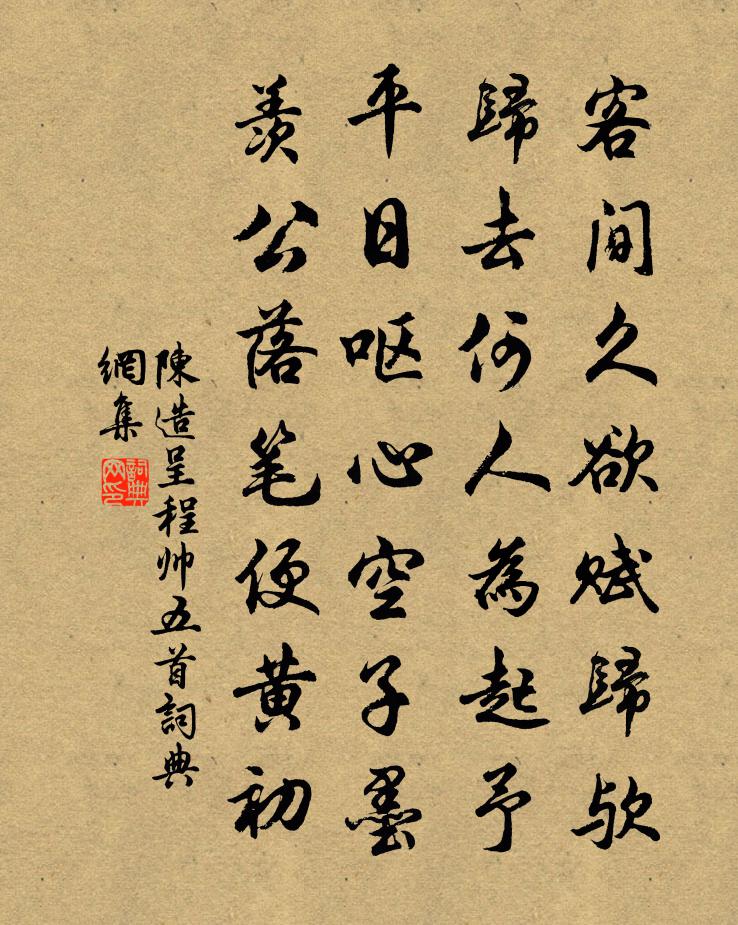 客间久欲赋歸欤
歸去何人為起予
平日呕心空子墨
羨公落笔便黄初
陳造呈程帅五首詞典
網集
詞典
网印